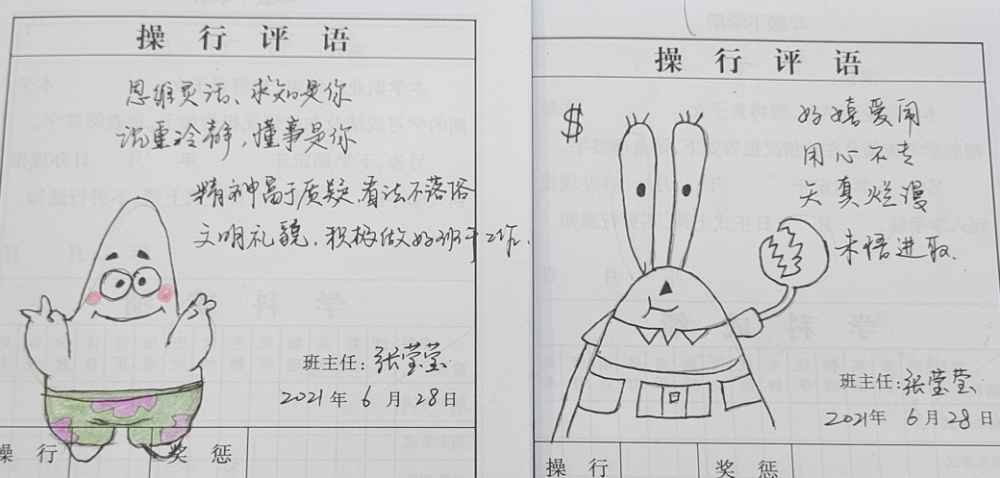 操行评语
思维灵活、求知是你
沉重冷静，懂事是你
精神高于质疑，看法不落俗
文明礼貌，积极做好班级工作.
班主任：张莹莹
2021年 6 月 28日
操 行
奖 惩
操行评语
$
好嬉爱闹
用心不专
天真烂漫
未悟进取
班主任：张莹莹
2021年 6月28日
操 行
奖 惩